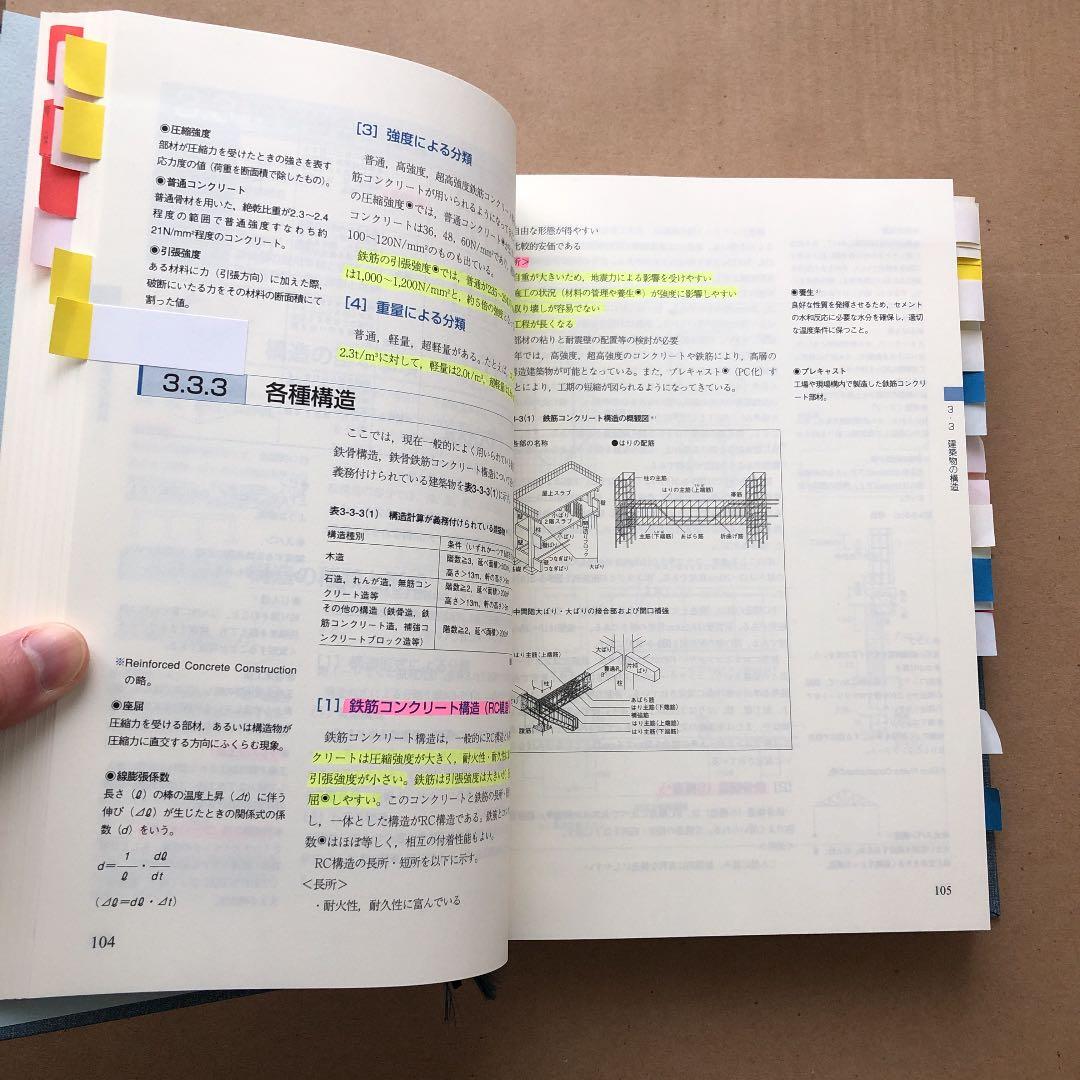 ◉圧縮強度
部材が圧縮力を受けたときの強さを表す
応力度の値（荷重を断面積で除したもの）。
◉普通コンクリート
普通骨材を用いた，絶乾比重が2.3～2.4
程度の範囲で普通強度すなわち約
21N/mm²程度のコンクリート。
◉引張強度
ある材料に力（引張方向）に加えた際，
破断にいたる力をその材料の断面積にて
割った値。
[3] 強度による分類
普通，高強度，超高強度鉄筋コンクリート
筋コンクリートが用いられるようになって
の圧縮強度◉では，普通コンクリート◉
コンクリートは36，48，60N/mm²であり，
100～120N/mm²のものも出ている。
鉄筋の引張強度◉では，普通が
は1,000～1,200N/mm²と，約5倍の強度
[4] 重量による分類
普通，軽量，超軽量がある。たとえば，
2.3t/m³に対して，軽量は2.0t/m³，
3.3.3 各種構造
ここでは，現在一般的によく用いられている
鉄骨構造，鉄骨鉄筋コンクリート構造について
義務付けられている建築物を表3-3-3(1)に示
表3-3-3(1) 構造計算が義務付けられている建築物
構造種別
条件（いずれか一つ
木造
階数≧3，延べ面積>
高さ>13m，軒の高さ>
石造，れんが造，無筋コン
クリート造等
階数≧2，延べ面積>
高さ>13m，軒の高さ>
その他の構造（鉄骨造，鉄
筋コンクリート造，補強コ
ンクリートブロック造等）
階数≧2，延べ面積>200m²
※Reinforced Concrete Construction
の略。
◉座屈
圧縮力を受ける部材，あるいは構造物が
圧縮力に直交する方向にふくらむ現象。
◉線膨張係数
長さ（ℓ）の棒の温度上昇（Δt）に伴う
伸び（Δℓ）が生じたときの関係式の係
数（d）をいう。
d=1/ℓ・dℓ/dt
(Δℓ=dℓ・Δt)
[1] 鉄筋コンクリート構造（RC構造
鉄筋コンクリート構造は，一般的にRC構造
クリートは圧縮強度が大きく，耐火性・耐久性
引張強度が小さい。鉄筋は引張強度は大きいが，
屈◉しやすい。このコンクリートと鉄筋の長所・
し，一体とした構造がRC構造である。鉄筋と
数◉はほぼ等しく，相互の付着性能もよい。
RC構造の長所・短所を以下に示す。
＜長所＞
・耐火性，耐久性に富んでいる
104
自由な形態が得やすい
比較的安価である
所＞
自重が大きいため，地震力による影響を受けやすい
施工の状況（材料の管理や養生◉）が強度に影響しやすい
取り壊しが容易でない
工程が長くなる
部材の粘りと耐震壁の配置等の検討が必要
年では，高強度，超高強度のコンクリートや鉄筋により，高層の
造建築物が可能となっている。また，プレキャスト◉（PC化）す
とにより，工期の短縮が図られるようになってきている。
3-3(1) 鉄筋コンクリート構造の概観図
各部の名称
●はりの配筋
屋上スラブ
小ばり
2階スラブ
柱
壁
壁ばり
つなぎばり
つなぎばり
大ばり
柱の主筋
はりの主筋(上端筋)
帯筋
主筋(下端筋)
あばら筋
折曲げ筋
中間階大ばり・大ばりの接合部および開口補強
はり主筋(上端筋)
大ばり
柱
柱
あばら筋
はり主筋(下端筋)
補強筋
はり主筋(上端筋)
はり主筋(下端筋)
腹筋
◉養生
良好な性質を発揮させるため，セメント
の水和反応に必要な水分を確保し，適切
な温度条件に保つこと。
◉プレキャスト
工場や現場構内で製造した鉄筋コンクリ
ート部材。
3・3 建築物の構造
105